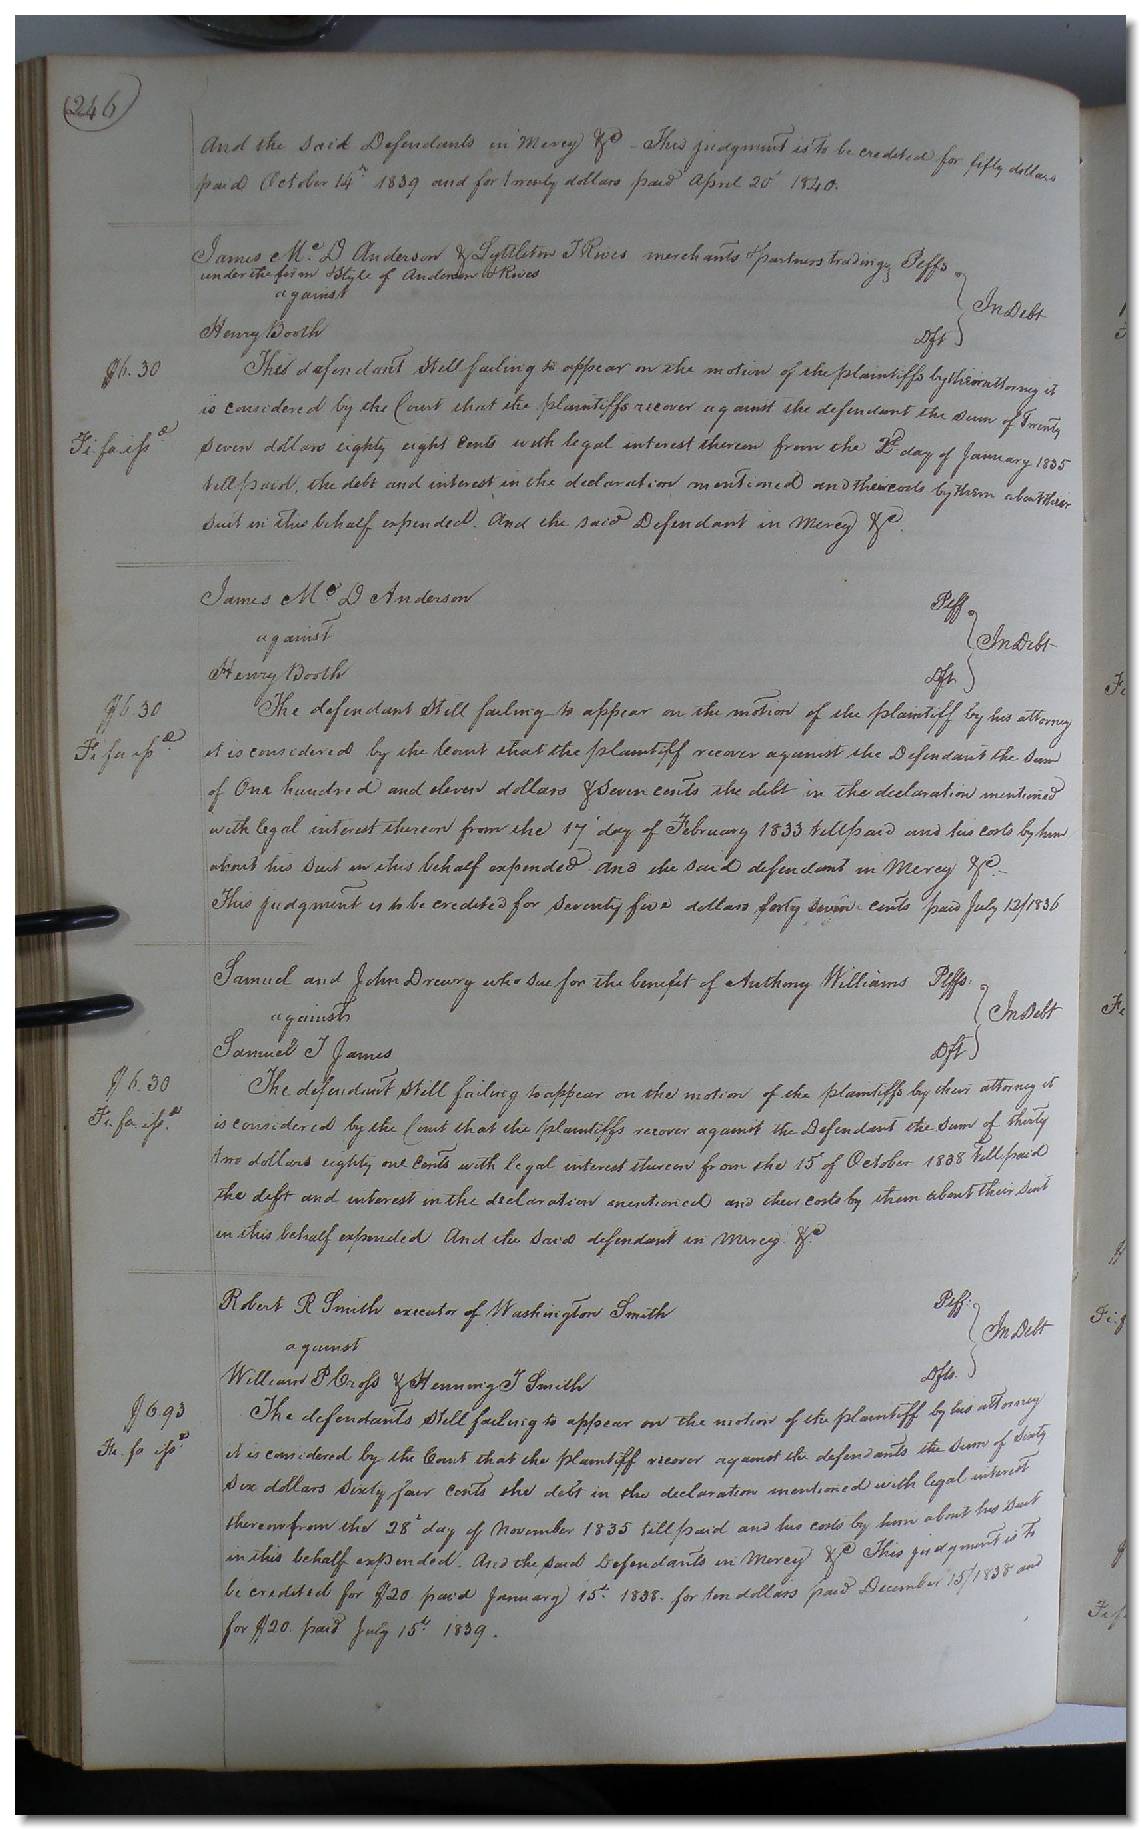 246
And the said Defendants in Mercy &c - This judgment is to be credited for fifty dollars
paid October 14th 1839 and for twenty dollars paid April 20th 1840.
James Mc D Anderson & Lyttleton T Rives merchants & partners trading Plffs
under the firm & Style of Anderson & Rives
against
In Debt
Henry Booth Dft
$6.30
This defendant still failing to appear on the motion of the plaintiffs by their attorney it
is considered by the Court that the plaintiffs recover against the defendant the sum of Twenty
Fi. fa issd
seven dollars eighty eight cents with legal interest thereon from the 2d day of January 1835
till paid, the debt and interest in the declaration mentioned and their costs by them about their
suit in this behalf expended. And the said Defendant in Mercy &c.
James Mc D Anderson Plff
against
In Debt
Henry Booth Dft
$6.30
The defendant still failing to appear on the motion of the plaintiff by his attorney
Fi. fa issd
it is considered by the Court that the plaintiff recover against the Defendant the sum
of One hundred and eleven dollars & seven cents the debt in the declaration mentioned
with legal interest thereon from the 17th day of February 1833 till paid and his costs by him
about his suit in this behalf expended And the said defendant in Mercy &c.
This judgment is to be credited for seventy five dollars forty seven cents paid July 12/1836
Samuel and John Drewry who sue for the benefit of Anthony Williams Plffs.
against
In Debt
Samuel T James Dft
$6.30
The defendant still failing to appear on the motion of the plaintiffs by their attorney it
Fi. fa issd.
is considered by the Court that the plaintiffs recover against the Defendant the sum of thirty
two dollars eighty one cents with legal interest thereon from the 15 of October 1838 till paid
the debt and interest in the declaration mentioned and their costs by them about their suit
in this behalf expended And the said defendant in Mercy &c
Robert R Smith executor of Washington Smith Plff.
against
In Debt
William P Cross & Henning T Smith Dfts.
$6.93
The defendants still failing to appear on the motion of the plaintiff by his attorney
Fi. fa issd
it is considered by the Court that the plaintiff recover against the defendants the sum of Sixty
Six dollars sixty four cents the debt in the declaration mentioned with legal interest
thereon from the 28th day of November 1835 till paid and his costs by him about his suit
in this behalf expended. And the said Defendants in Mercy &c This judgment is to
be credited for $20 paid January 15th 1838. for ten dollars paid December 15/1838 and
for $20. paid July 15th 1839.